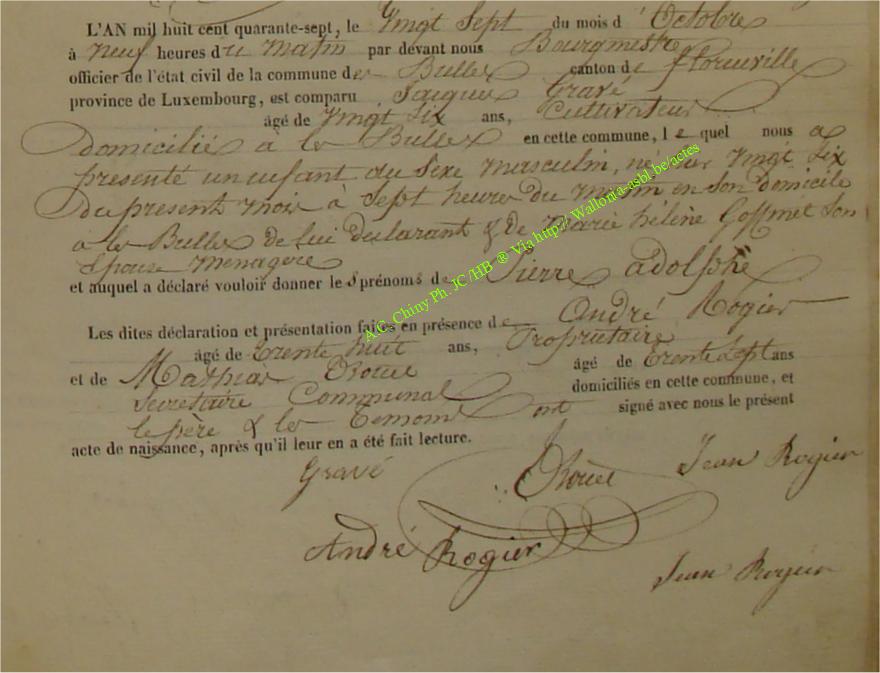 L'AN mil huit cent quarante-sept, le Vingt Sept du mois d' Octobre
à neuf heures du matin par devant nous Bourgmestre
officier de l'état civil de la commune des Bulles canton de florenville
province de Luxembourg, est comparu Jacques Gravé
âgé de Vingt Six ans, Cultivateur
domicilié à les Bulles en cette commune, lequel nous a
présenté un enfant du Sexe masculin, né le Vingt Six
du present mois à Sept heures du matin en son domicile
à les Bulles de lui declarant & de Marie hélène Goffinet Son
Epouse menagere
et auquel a déclaré vouloir donner les prénoms de Pierre adolphe
Les dites déclaration et présentation faites en présence de André Rogier
âgé de trente huit ans, Proprietaire
et de Mathias âgé de trente Sept ans
Secretaire Communal domiciliés en cette commune, et
le père & les temoins ont signé avec nous le présent
acte de naissance, après qu'il leur en a été fait lecture.
Gravé Jean Rogier
André Rogier
Jean Rogier
A.C. Chiny Ph. JC /HB @ Via http:// Wallonia-asbl.be/actes